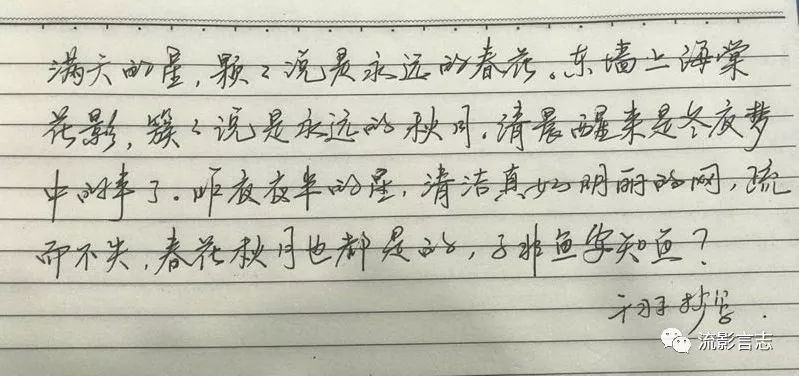 满天的星,颗々说是永远的春花。东墙上海棠
花影,簇々说是永远的秋月。清晨醒来是冬夜梦
中的事了。昨夜夜半的星,清洁真如明丽的网,疏
而不失,春花秋月也都是的,子非鱼安知鱼?
抄写
流影言志